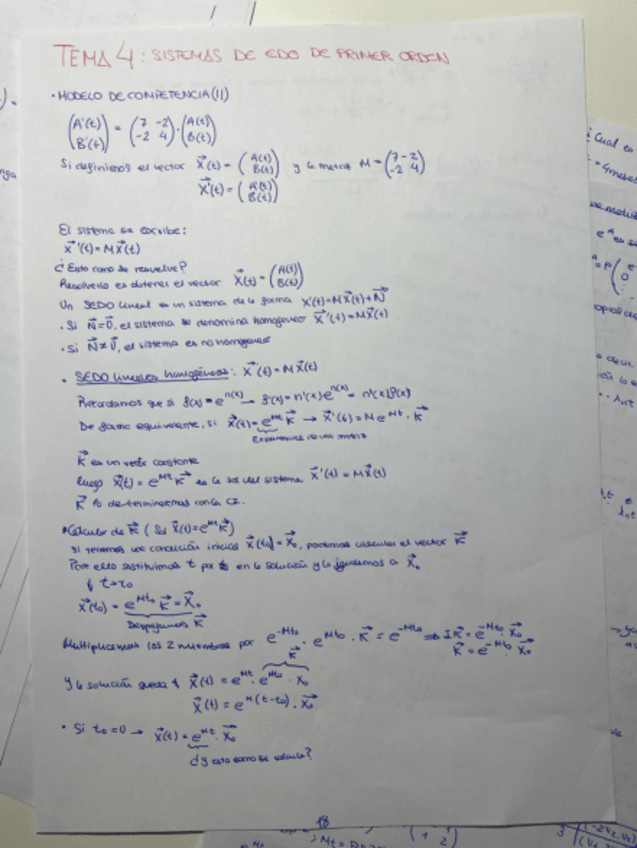 TEMA 4: SISTEMAS DE EDO DE PRIMER ORDEN
• MODELO DE COMPETENCIA (II)
(A'(t) B'(t)) = (7 -2 -2 4) · (A(t) B(t))
Si definimos el vector X⃗(t) = (A(t) B(t)) y la matriz M = (7 -2 -2 4)
X⃗'(t) = (A'(t) B'(t))
El sistema se escribe:
X⃗'(t) = M X⃗(t)
¿Esto como se resuelve?
Resolverlo es obtener el vector X⃗(t) = (A(t) B(t))
Un SEDO lineal es un sistema de la forma X'(t) = M X⃗(t) + N⃗
• Si N⃗ = 0⃗, el sistema se denomina homogeneo X⃗'(t) = M X⃗(t)
• Si N⃗ ≠ 0⃗, el sistema es no homogeneo
• SEDO lineales homogéneos: X⃗'(t) = M X⃗(t)
Recordamos que si f(x) = e^n(x) → f'(x) = n'(x) e^n(x) = n'(x) f(x)
De forma equivalente, si X⃗(t) = e^Mt K⃗ → X⃗'(t) = M e^Mt · K⃗
Exponencial de una matriz
K⃗ es un vector constante
Luego X⃗(t) = e^Mt K⃗ es la sol del sistema X⃗'(t) = M X⃗(t)
K⃗ lo determinaremos con la CI.
Calculo de K⃗ (Sol X⃗(t) = e^Mt K⃗)
Si tenemos una condición inicial X⃗(t₀) = X⃗₀, podemos calcular el vector K⃗
Para ello sustituimos t por t₀ en la solución y lo igualamos a X⃗₀
t = t₀
X⃗(t₀) = e^Mt₀ K⃗ = X⃗₀
Despejamos K⃗
Multiplicamos los 2 miembros por e^-Mt₀ · e^Mt₀ · K⃗ = e^-Mt₀ ⇒ I K⃗ = e^-Mt₀ · X⃗₀
K⃗ = e^-Mt₀ · X⃗₀
K⃗
y la solución queda X⃗(t) = e^Mt · e^-Mt₀ · X₀
X⃗(t) = e^M(t-t₀) · X⃗₀
• Si t₀ = 0 → X⃗(t) = e^Mt · X⃗₀
¿y esto como se calcula?
18